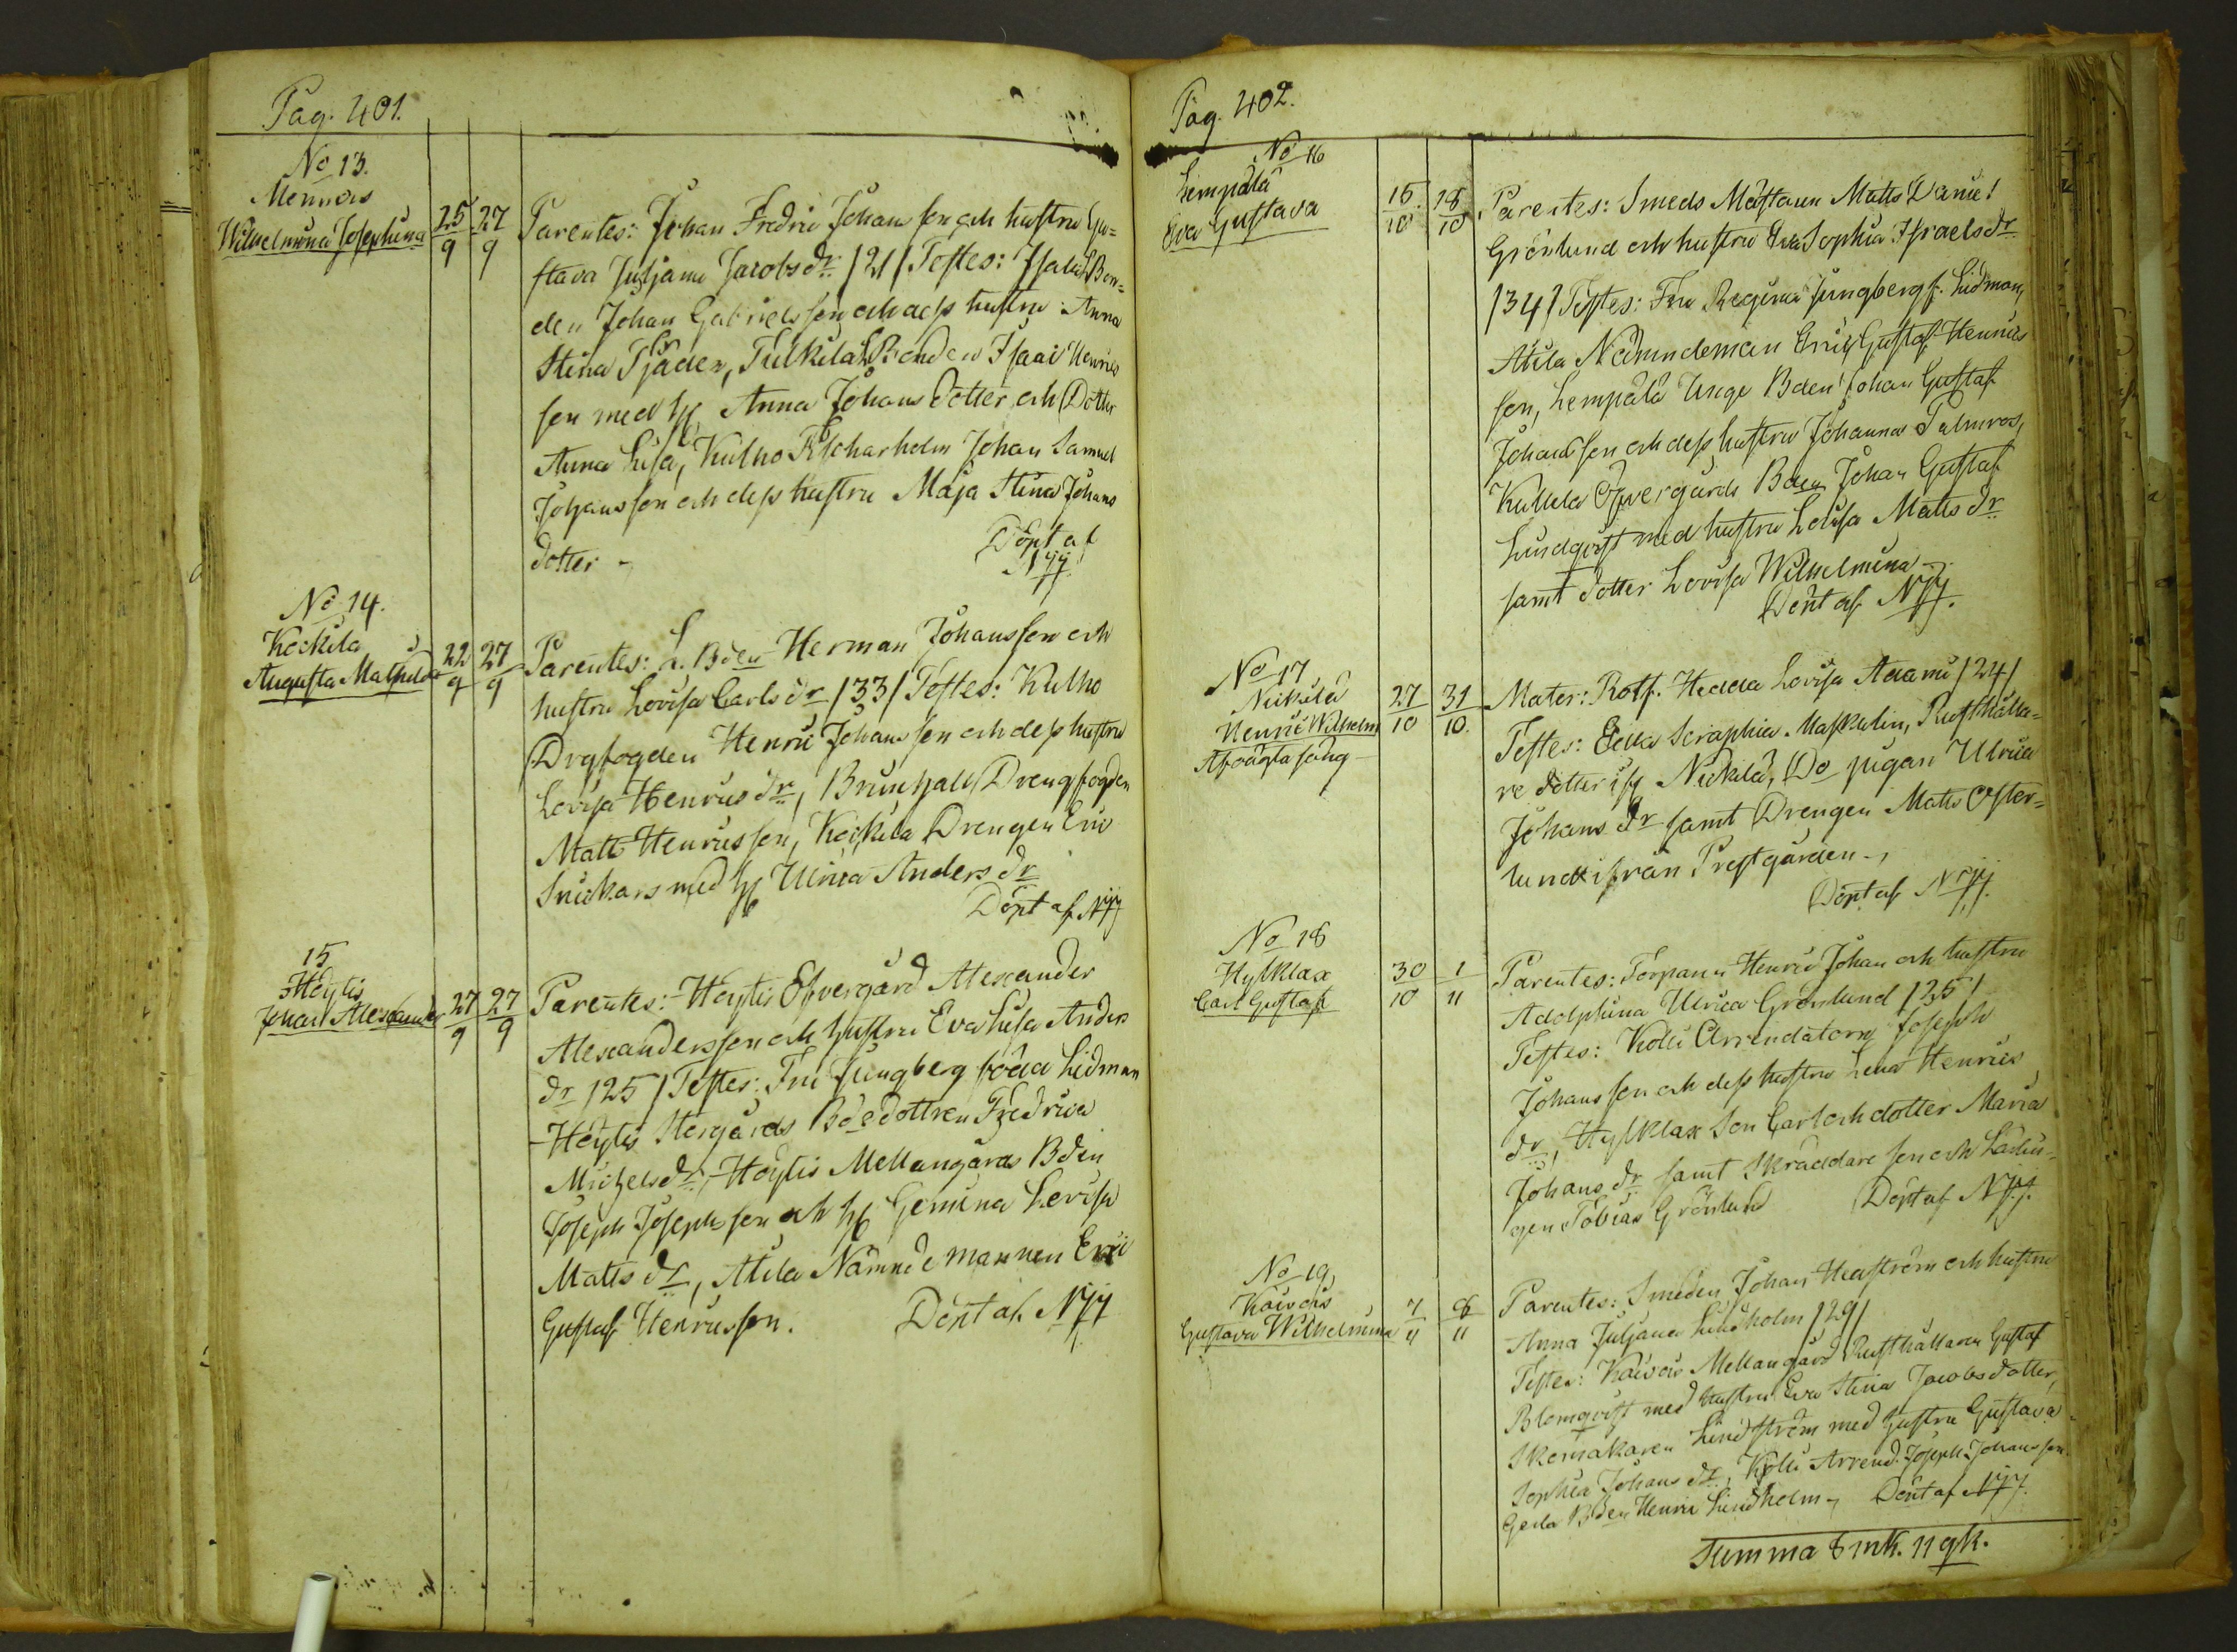 Pag. 401.
No 13.
Mennois
Wilhelmina Josephina
25/9 27/9
Parentes: Johan Fredric Johansson och hustru Gu=
stava Juljana Jacobsdr /21/ Testes: Isala LBon=
den Johan Gabrielsson och dess hustru Anna
Stina Tjäder, Tulkila LBonden Isaac Henrics
son med h. Anna Johansdotter och Dotter
Anna Lisa, Kulho Johan Samuel
Johansson och dess hustru Maja Stina Johans
dotter -
Döpt af
Njj
No 14.
Kockila
Augusta Mathilda
22/9 27/9
Parentes: L. Bden Herman Johansson och
hustru Lovisa Carlsdr /33/ Testes: Kulho
Drgfogden Henric Johansson och dess hustru
Lovisa Henricsdr, Brunshall Drengfogden
Matts Henricsson, Kockila Drengen Eric
Snickars med h. Ulrica Andersdr
Döpt af Njj
15
Höytis
Johan Alexander
27/9 27/9
Parentes: Höytis Öfvergård Alexander
Alexandersson och hustru Eva Lisa Anders
dr /25/ Testes: Fru Ljungberg födda Lidman
Höytis Storgårds Bdedottren Fredrica
Michelsdr, Höytis Mellangårds Bden
Joseph Josephsson och h. Gemina Lovisa
Mattsdr, Alila Nämndemannen Eric
Gustaf Henricsson. Döpt af Njj
Pag. 402.
No 16
Lempälä
Eva Gustava
15/10 18/10
Parentes: Smeds Mästaren Matts Daniel
Grönlund och hustru Eva Sophia Israelsdr
/34/ Testes: Fru Regina Ljungberg f. Lidman,
Alila Nämndeman Eric Gustaf Henrics
son, Lempälä Unge Bden Johan Gustaf
Johansson och dess hustru Johanna Palmros,
Kullela Öfvergårds Bden Johan Gustaf
Lundqvist med hustru Lovisa Mattsdr
samt dotter Lovisa Wilhelmina -
Döpt af Njj.
No 17
Nickilä
Henric Wilhelm
Afoägta säng
27/10 31/10
Mater: Rotf. Hedda Lovisa Adami /24/
Testes: Edla Seraphia Maskulin, Rusthålla=
re dotter ifr Nickilä, Do pigan Ulrica
Johansdr samt Drengen Matts Öster=
lund ifrån Prestgården -
Döpt af Njj.
No 18
Hylklax
Carl Gustaf
30/10 1/11
Parentes: Torparn Henric Johan och hustru
Adolphina Ulrica Grönlund /25/
Testes: Kolli Arrendatorn Joseph
Johansson och dess hustru Lena Henrics
dr, Hylklax Son Carl och dotter Maria
Johansdr samt Skräddare son och Lärlin=
gen Tobias Grönlund Döpt af Njj.
No 19,
Kaivois
Gustava Wilhelmina
7/11 8/11
Parentes: Smeden Johan Hagström och hustru
Anna Juljana Lindholm /29/
Testes: Kaivois Mellangård Rusthållaren Gustaf
Blomqvist med hustru Eva Stina Jacobsdotter,
Skomakaren Lindström med hustru Gustava
Sophia Johansdr, Kolli Arrend. Joseph Johansson
Gerla Bden Henric Lindholm - Döpt af Njj.
Summa 8 mk. 11 qk.